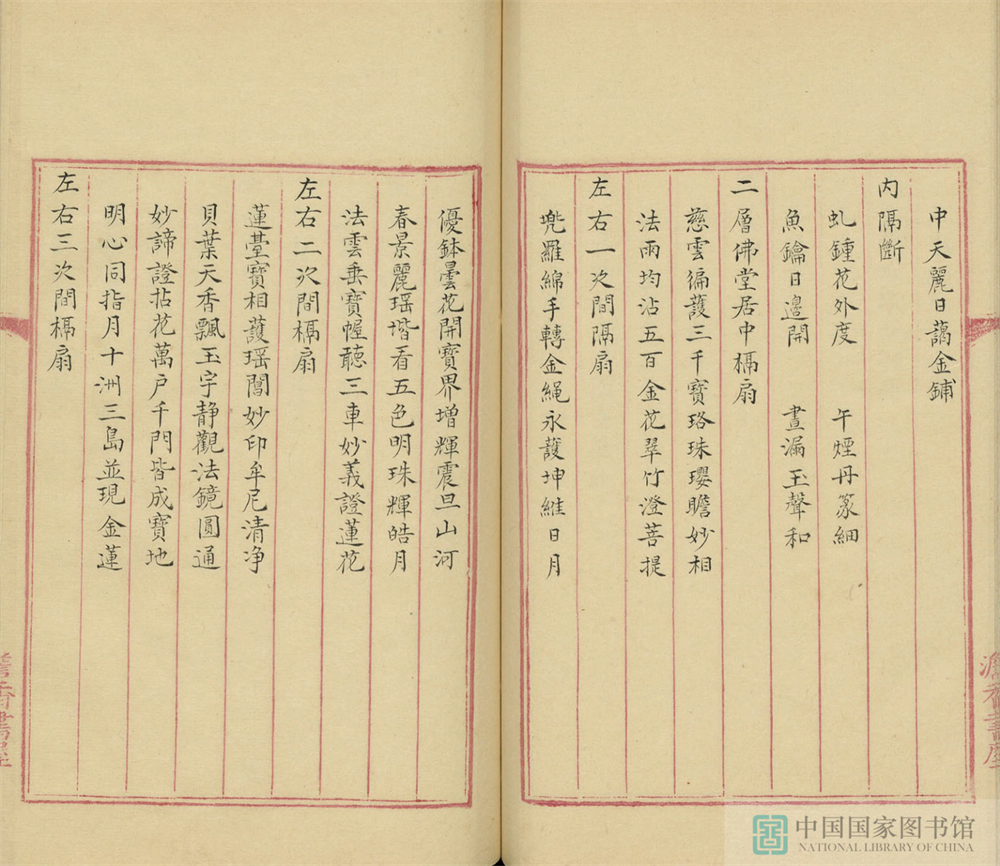 中天麗日藹金鋪
內隔斷
虬鍾花外度　午煙丹篆細
魚鑰日邊開　晝漏玉聲和
二層佛堂居中槅扇
慈雲徧護三千寶珞珠瓔瞻妙相
法雨均沾五百金花翠竹澄菩提
左右一次間隔扇
兠羅綿手轉金繩永護坤維日月
優鉢曇花開寶界增輝震旦山河
春景麗瑶堦看五色明珠輝皓月
法雲垂寶幄聽三車妙義證蓮花
左右二次間槅扇
蓮臺寶相護瑶閶妙印牟尼清净
貝葉天香飄玉宇静觀法鏡圓通
妙諦證拈花萬户千門皆成寶地
明心同指月十洲三島並現金蓮
左右三次間槅扇
中国国家图书馆
NATIONAL LIBRARY OF CHINA